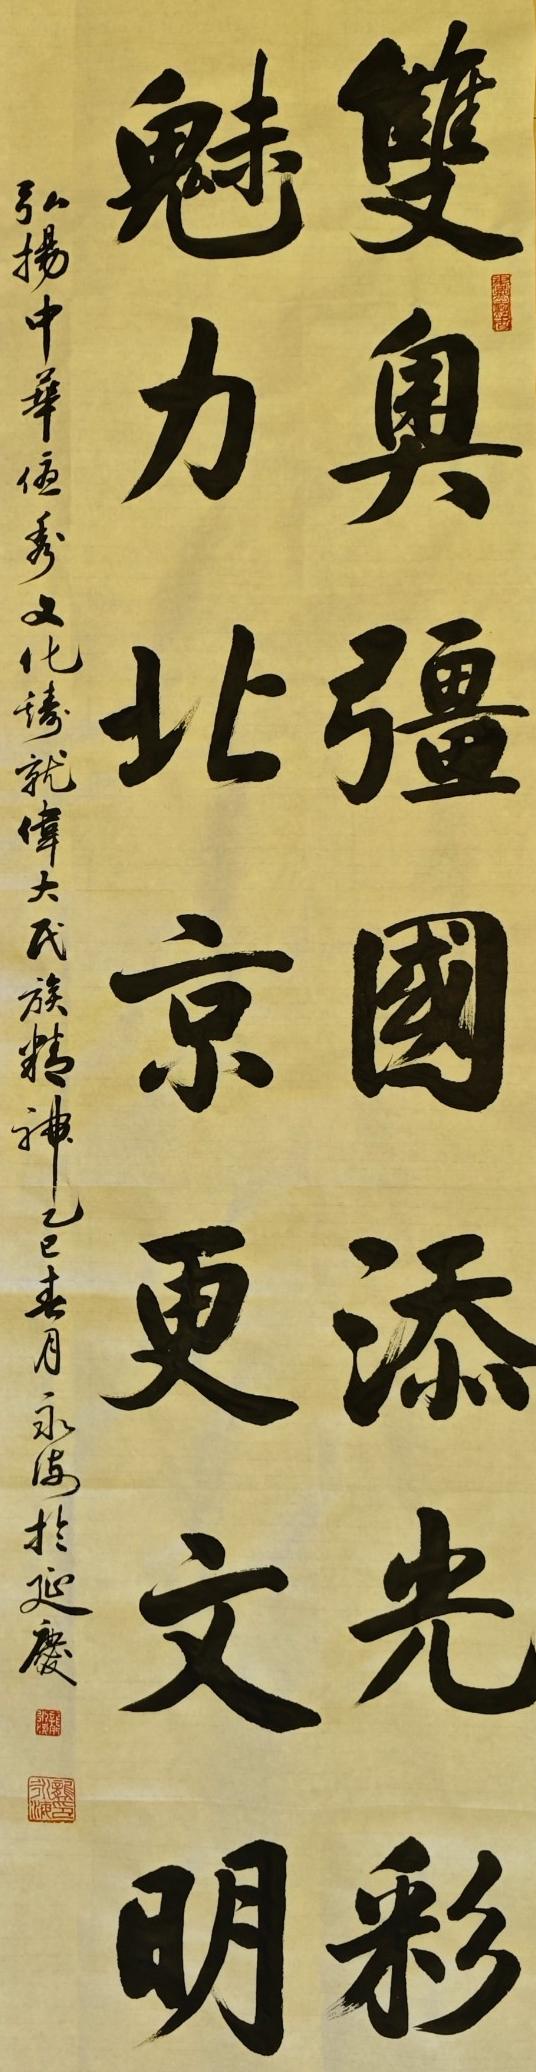 雙奧彊國添光彩
魅力北京更文明
弘揚中華優秀文化鑄就偉大民族精神乙巳春月永海於延慶